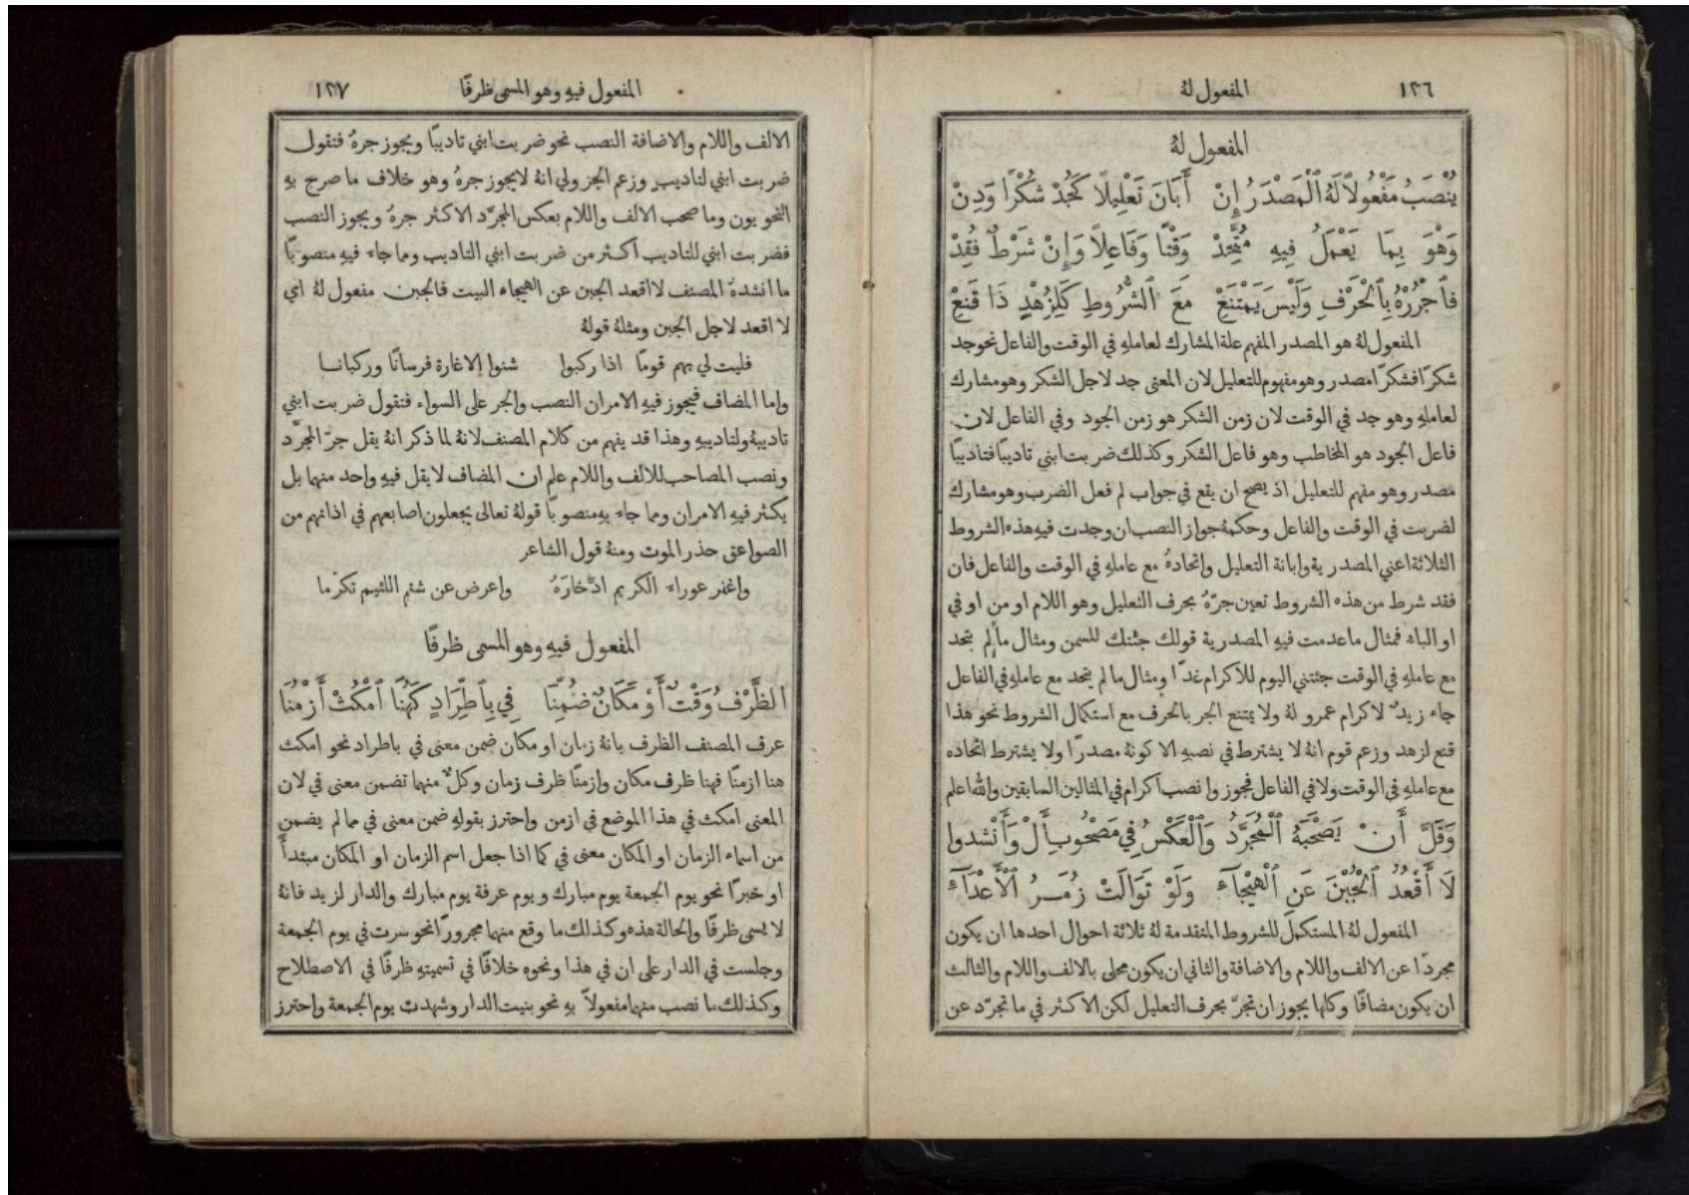 ١٢٦
المفعول لهُ
المفعول لهُ
يُنْصَبُ مَفْعُولًا لَهُ ٱلْمَصْدَرُ إِنْ أَبَانَ تَعْلِيلًا كَجُدْ شُكْرًا وَدِنْ
وَهْوَ بِمَا يَعْمَلُ فِيهِ مُتَّحِدْ وَقْتًا وَفَاعِلًا وَإِنْ شَرْطٌ فُقِدْ
فَٱجْرُرْهُ بِٱلْحَرْفِ وَلَيْسَ يَمْتَنِعْ مَعَ ٱلشُّرُوطِ كَلِزُهْدٍ ذَا قَنِعْ
المفعول لهُ هو المصدر المفهم علة المشارك لعاملهِ في الوقت والفاعل نحو جد
شكرًا فشكرًا مصدر وهو مفهوم للتعليل لان المعنى جد لاجل الشكر وهو مشارك
لعاملهِ وهو جد في الوقت لان زمن الشكر هو زمن الجود وفي الفاعل لان
فاعل الجود هو المخاطب وهو فاعل الشكر وكذلك ضربت ابني تاديبًا فتاديبًا
مصدر وهو مفهم للتعليل اذ يصح ان يقع في جواب لم فعل الضرب وهو مشارك
لضربت في الوقت والفاعل وحكمهُ جواز النصب ان وجدت فيهِ هذه الشروط
الثلاثة اعني المصدرية وابانة التعليل واتحادهُ مع عاملهِ في الوقت والفاعل فان
فقد شرط من هذه الشروط تعين جرّهُ بحرف التعليل وهو اللام او من او في
او الباء فمثال ما عدمت فيهِ المصدرية قولك جئتك للسمن ومثال ما لم يتحد
مع عاملهِ في الوقت جئتني اليوم للاكرام غدًا ومثال ما لم يتحد مع عاملهِ في الفاعل
جاء زيدٌ لاكرام عمرو لهُ ولا يمتنع الجر بالحرف مع استكمال الشروط نحو هذا
قنع لزهد وزعم قوم انهُ لا يشترط في نصبهِ الا كونهُ مصدرًا ولا يشترط اتحاده
مع عاملهِ في الوقت ولا في الفاعل فجوزوا نصب اكرام في المثالين السابقين والله اعلم
وَقَلَّ أَنْ يَصْحَبَهُ ٱلْمُجَرَّدُ وَٱلْعَكْسُ فِي مَصْحُوبِ أَلْ وَأَنْشَدُوا
لَا أَقْعُدُ ٱلْجُبْنَ عَنِ ٱلْهَيْجَاءِ وَلَوْ تَوَالَتْ زُمَرُ ٱلْأَعْدَاءِ
المفعول لهُ المستكمل للشروط المتقدمة لهُ ثلاثة احوال احدها ان يكون
مجردًا عن الالف واللام والاضافة والثاني ان يكون محلى بالالف واللام والثالث
ان يكون مضافًا وكلها يجوز ان تجرّ بحرف التعليل لكن الاكثر في ما تجرّد عن
المفعول فيهِ وهو المسمى ظرفًا
١٢٧
الالف واللام والاضافة النصب نحو ضربت ابني تاديبًا ويجوز جرهُ فتقول
ضربت ابني لتاديبٍ وزعم الجزولي انهُ لا يجوز جرهُ وهو خلاف ما صرح بهِ
النحويون وما صحب الالف واللام بعكس المجرّد الاكثر جرهُ ويجوز النصب
فضربت ابني للتاديب اكثر من ضربت ابني التاديب وما جاء فيهِ منصوبًا
ما انشدهُ المصنف لا اقعد الجبن عن الهيجاء البيت فالجبن مفعول لهُ اي
لا اقعد لاجل الجبن ومثلهُ قولهُ
فليت لي بهم قومًا اذا ركبوا شنوا الاغارة فرسانًا وركبانا
واما المضاف فيجوز فيهِ الامران النصب والجر على السواء فتقول ضربت ابني
تاديبهُ ولتاديبهِ وهذا قد يفهم من كلام المصنف لانهُ لما ذكر انهُ يقل جرّ المجرّد
ونصب المصاحب للالف واللام علم ان المضاف لا يقل فيهِ واحد منهما بل
يكثر فيهِ الامران ومما جاء بهِ منصوبًا قولهُ تعالى يجعلون اصابعهم في اذانهم من
الصواعق حذر الموت ومنهُ قول الشاعر
واغفر عوراء الكريم ادّخارَهُ واعرض عن شتم اللئيم تكرّما
المفعول فيهِ وهو المسمى ظرفًا
الظَّرْفُ وَقْتٌ أَوْ مَكَانٌ ضُمِّنَا فِي بِٱطِّرَادٍ كَهُنَا ٱمْكُثْ أَزْمُنَا
عرف المصنف الظرف بانهُ زمان او مكان ضمن معنى في باطراد نحو امكث
هنا ازمنًا فهنا ظرف مكان وازمنًا ظرف زمان وكلٌّ منهما تضمن معنى في لان
المعنى امكث في هذا الموضع في ازمن واحترز بقولهِ ضمن معنى في مما لم يضمن
من اسماء الزمان او المكان معنى في كما اذا جعل اسم الزمان او المكان مبتدأً
او خبرًا نحو يوم الجمعة يوم مبارك ويوم عرفة يوم مبارك والدار لزيد فانهُ
لا يسمى ظرفًا والحالة هذه وكذلك ما وقع منهما مجرورًا نحو سرت في يوم الجمعة
وجلست في الدار على ان في هذا ونحوه خلافًا في تسميتهِ ظرفًا في الاصطلاح
وكذلك ما نصب منهما مفعولًا بهِ نحو بنيت الدار وشهدت يوم الجمعة واحترز